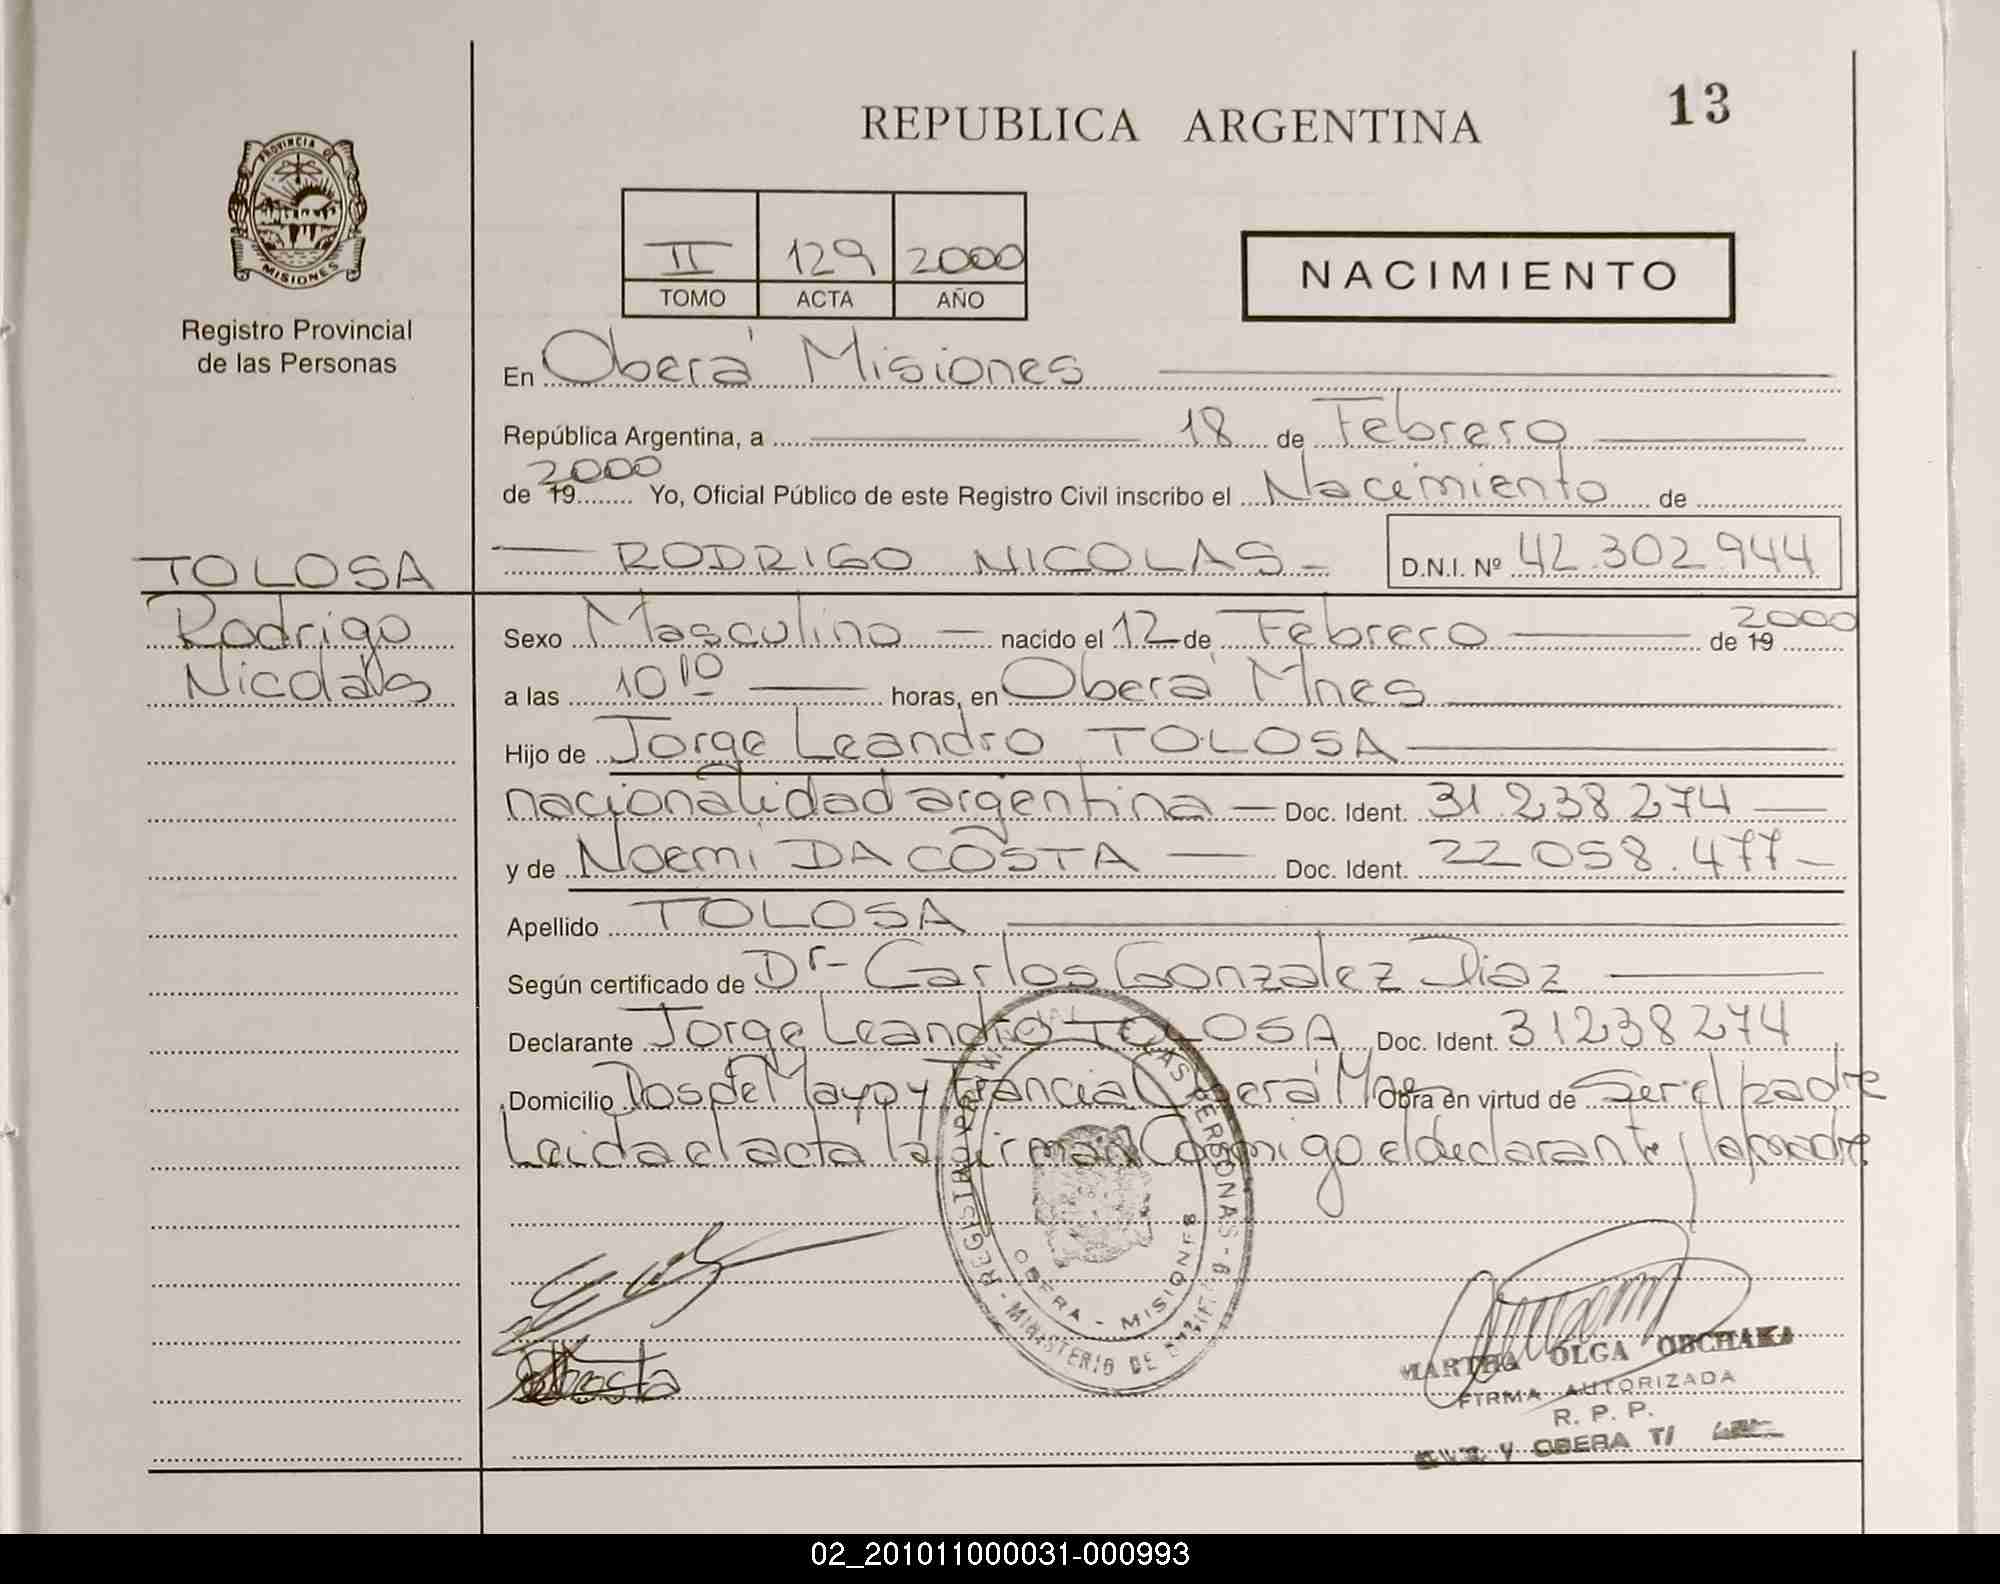 13
REPUBLICA ARGENTINA
PROVINCIA DE
MISIONES
Registro Provincial
de las Personas
II 129 2000
TOMO ACTA AÑO
NACIMIENTO
En Oberá Misiones
República Argentina, a 18 de Febrero
2000
de 19 Yo, Oficial Público de este Registro Civil inscribo el Nacimiento de
TOLOSA
RODRIGO NICOLAS D.N.I. Nº 42.302.944
Rodrigo
Nicolás
Sexo Masculino nacido el 12 de Febrero de 19 2000
a las 10 10 horas, en Oberá Mnes
Hijo de Jorge Leandro TOLOSA
nacionalidad argentina Doc. Ident. 31.238.274
y de Noemi DA COSTA Doc. Ident. 22.058.477
Apellido TOLOSA
Según certificado de Dr Carlos Gonzalez Diaz
Declarante Jorge Leandro TOLOSA Doc. Ident. 31238274
Domicilio Dos de Mayo y Francia Oberá Mnes Obra en virtud de Ser el padre
Leida el acta la firman Conmigo el declarante y la madre
REGISTRO PROVINCIAL DE LAS PERSONAS
MINISTERIO DE
OBERA - MISIONES
MARTHA OLGA OBCHAKA
FIRMA AUTORIZADA
R. P. P.
V OBERA
02_201011000031-000993